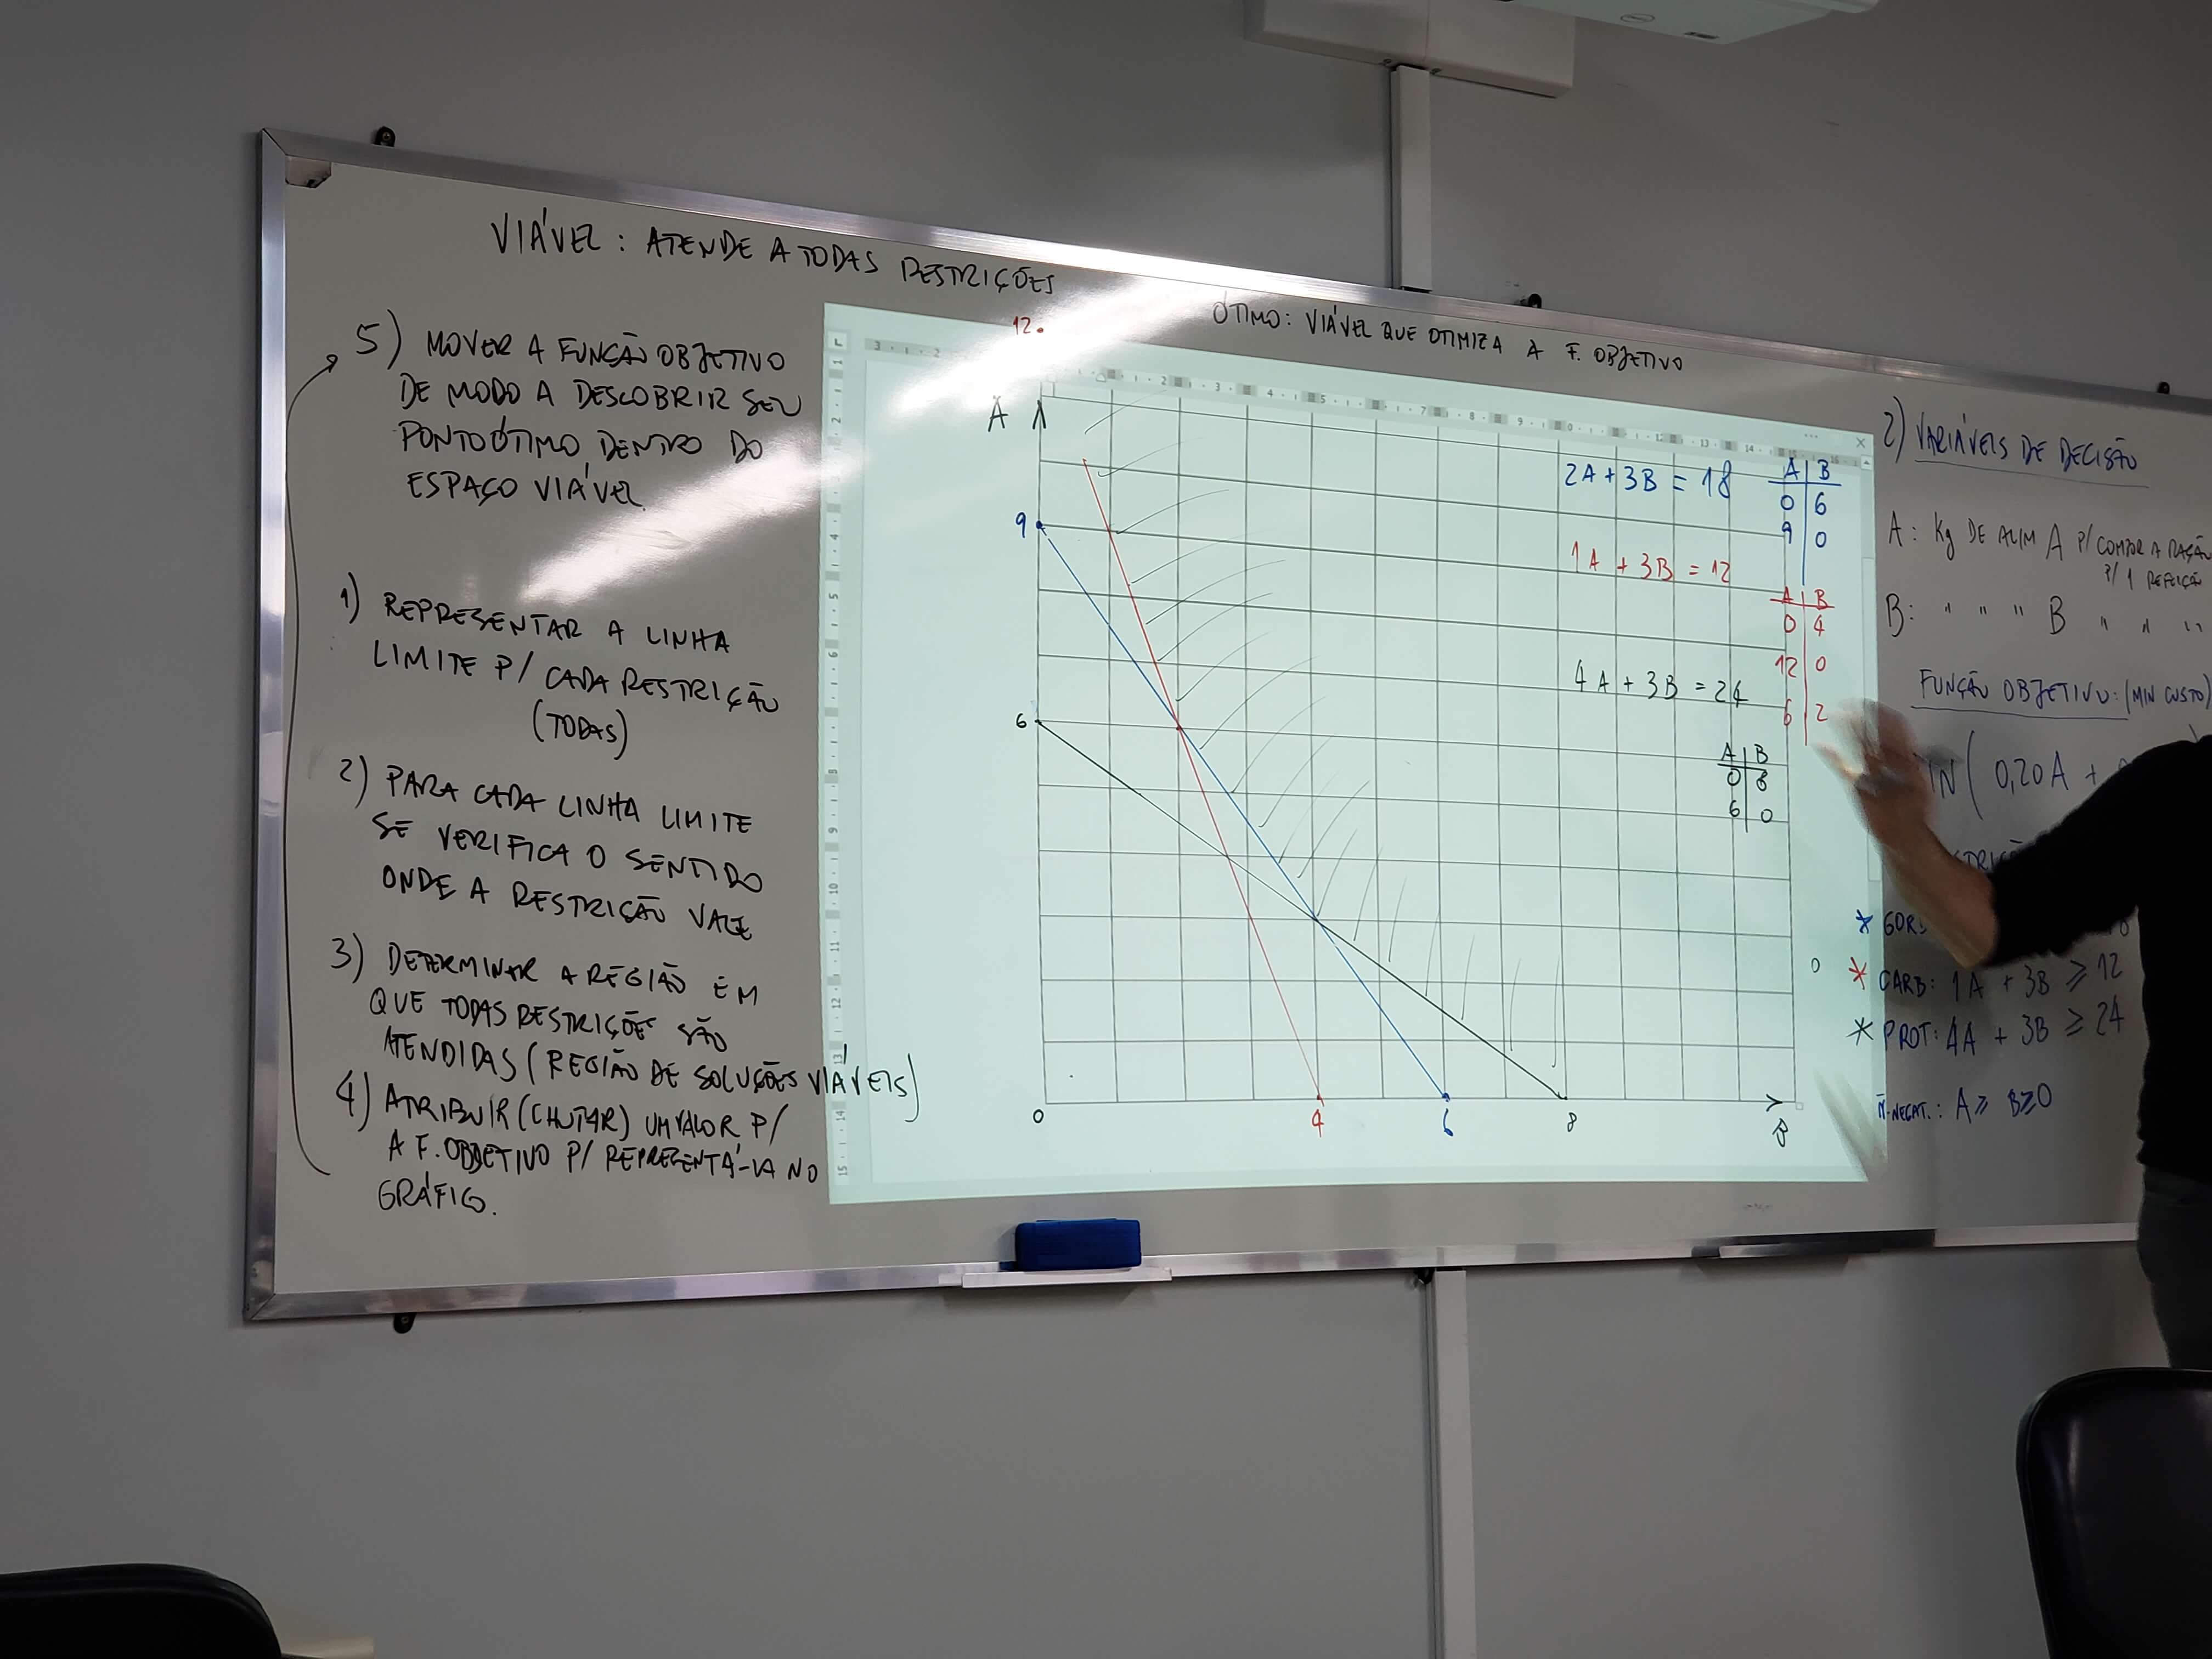 VIÁVEL: ATENDE A TODAS RESTRIÇÕES
ÓTIMO: VIÁVEL QUE OTIMIZA A F. OBJETIVO
5) MOVER A FUNÇÃO OBJETIVO
DE MODO A DESCOBRIR SEU
PONTO ÓTIMO DENTRO DO
ESPAÇO VIÁVEL.
1) REPRESENTAR A LINHA
LIMITE P/ CADA RESTRIÇÃO
(TODAS)
2) PARA CADA LINHA LIMITE
SE VERIFICA O SENTIDO
ONDE A RESTRIÇÃO VALE
3) DETERMINAR A REGIÃO EM
QUE TODAS RESTRIÇÕES SÃO
ATENDIDAS (REGIÃO DE SOLUÇÕES VIÁVEIS)
4) ATRIBUIR (CHUTAR) UM VALOR P/
A F. OBJETIVO P/ REPRESENTÁ-LA NO
GRÁFICO.
12
A
9
6
0
4
6
8
B
2A + 3B = 18
A B
0 6
9 0
1A + 3B = 12
A B
0 4
12 0
6 2
4A + 3B = 24
A B
0 8
6 0
2) VARIÁVEIS DE DECISÃO
A: Kg DE ALIM A P/ COMPOR A RAÇÃO
P/ 1 REFEIÇÃO
B: " " " B " " "
FUNÇÃO OBJETIVO: (MIN CUSTO)
0,20A +
0
* CARB: 1A + 3B ≥ 12
* PROT: 4A + 3B ≥ 24
Ñ-NEGAT.: A ≥ B≥0